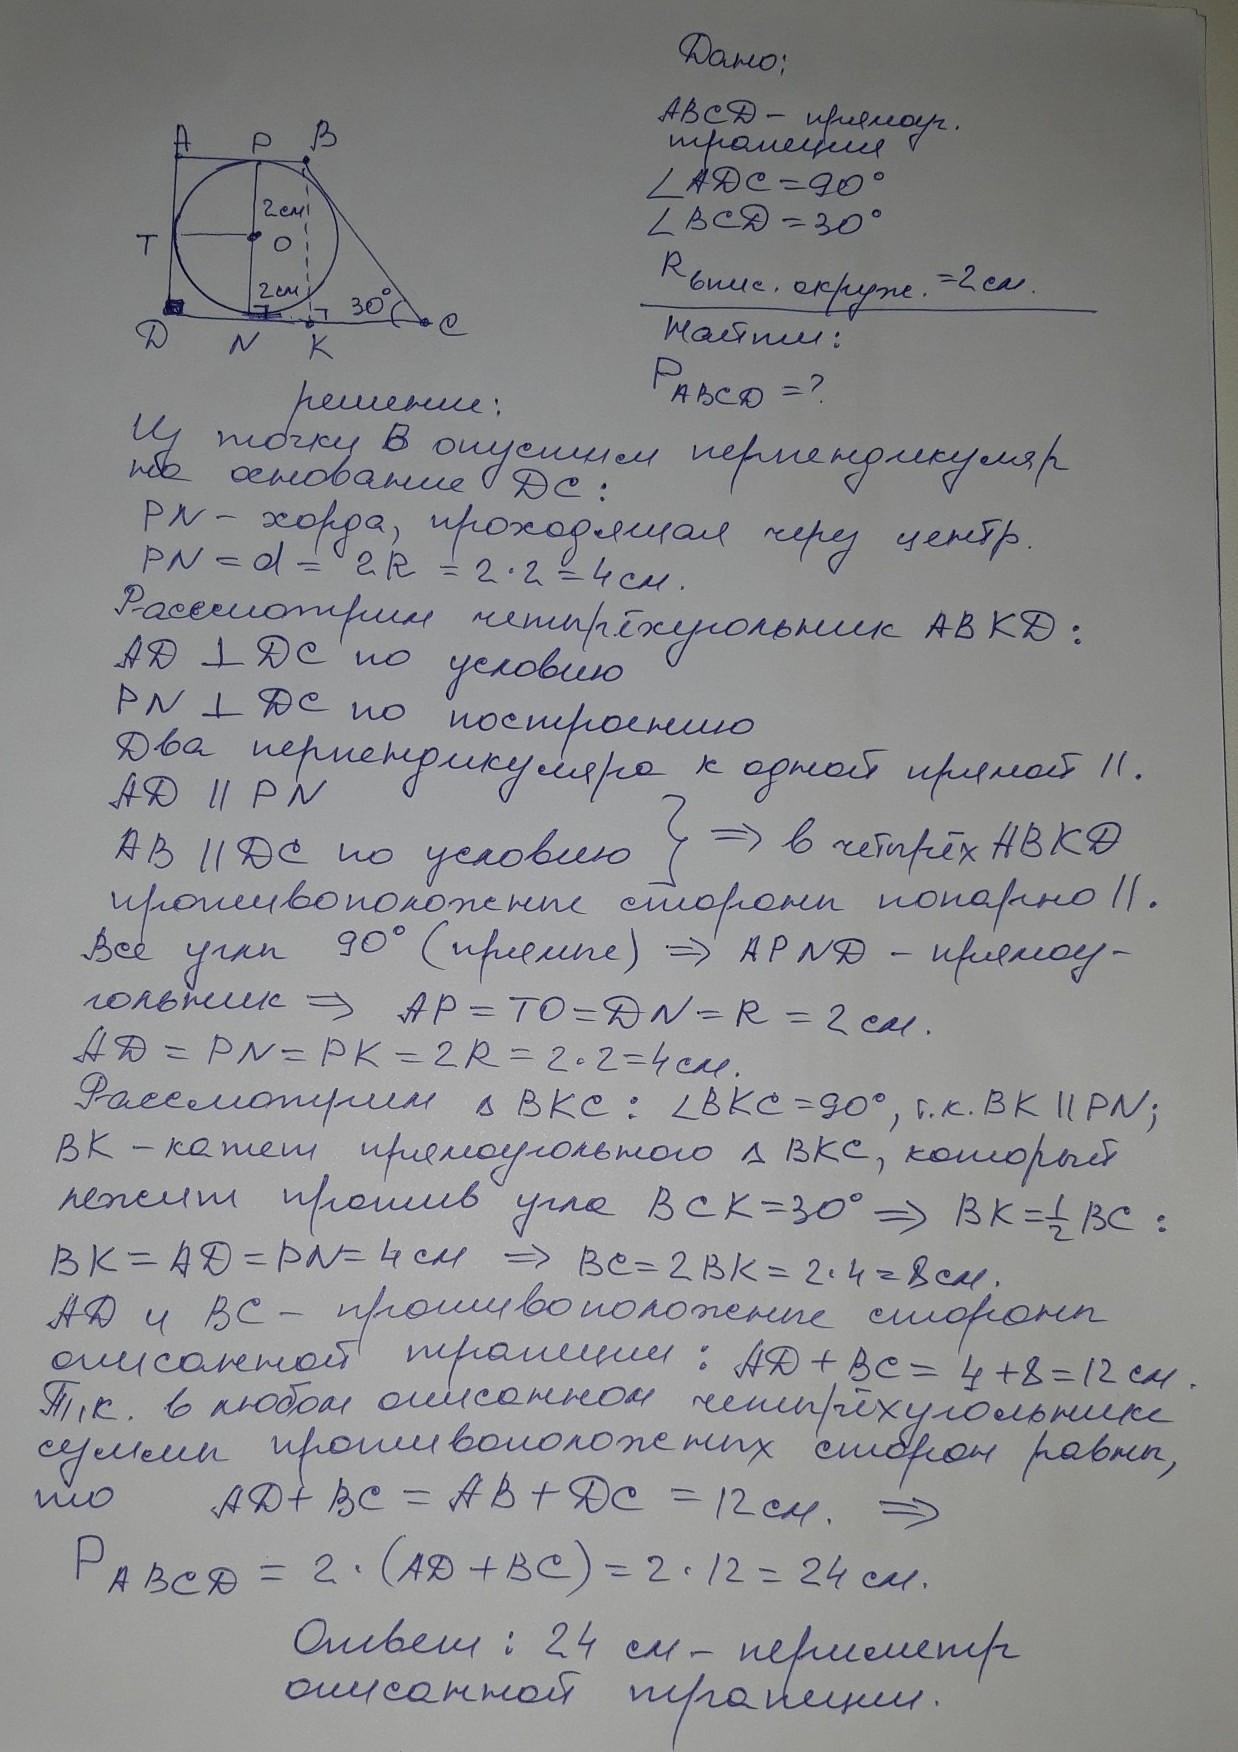 Дано:
ABCD – прямоуг.
трапеция
∠ADC = 90°
∠BCD = 30°
R впис. окруж. = 2 см.
Найти:
P ABCD = ?
A P B
2см
T O
2см 30°
D N K C
решение:
Из точки B опустим перпендикуляр
на основание DC:
PN – хорда, проходящая через центр.
PN = d = 2R = 2·2 = 4 см.
Рассмотрим четырёхугольник ABKD:
AD ⊥ DC по условию
PN ⊥ DC по построению
Два перпендикуляра к одной прямой ||.
AD || PN
AB || DC по условию } ⇒ в четырёх ABKD
противоположные стороны попарно ||.
Все углы 90° (прямые) ⇒ APND – прямоу-
гольник ⇒ AP = TO = DN = R = 2 см.
AD = PN = PK = 2R = 2·2 = 4 см.
Рассмотрим Δ BKC: ∠BKC = 90°, т.к. BK || PN;
BK – катет прямоугольного Δ BKC, который
лежит против угла BCK = 30° ⇒ BK = 1/2 BC:
BK = AD = PN = 4 см ⇒ BC = 2BK = 2·4 = 8 см.
AD и BC – противоположные стороны
описанной трапеции: AD + BC = 4 + 8 = 12 см.
Т.к. в любом описанном четырёхугольнике
суммы противоположных сторон равны,
то AD + BC = AB + DC = 12 см. ⇒
P ABCD = 2·(AD + BC) = 2·12 = 24 см.
Ответ: 24 см – периметр
описанной трапеции.